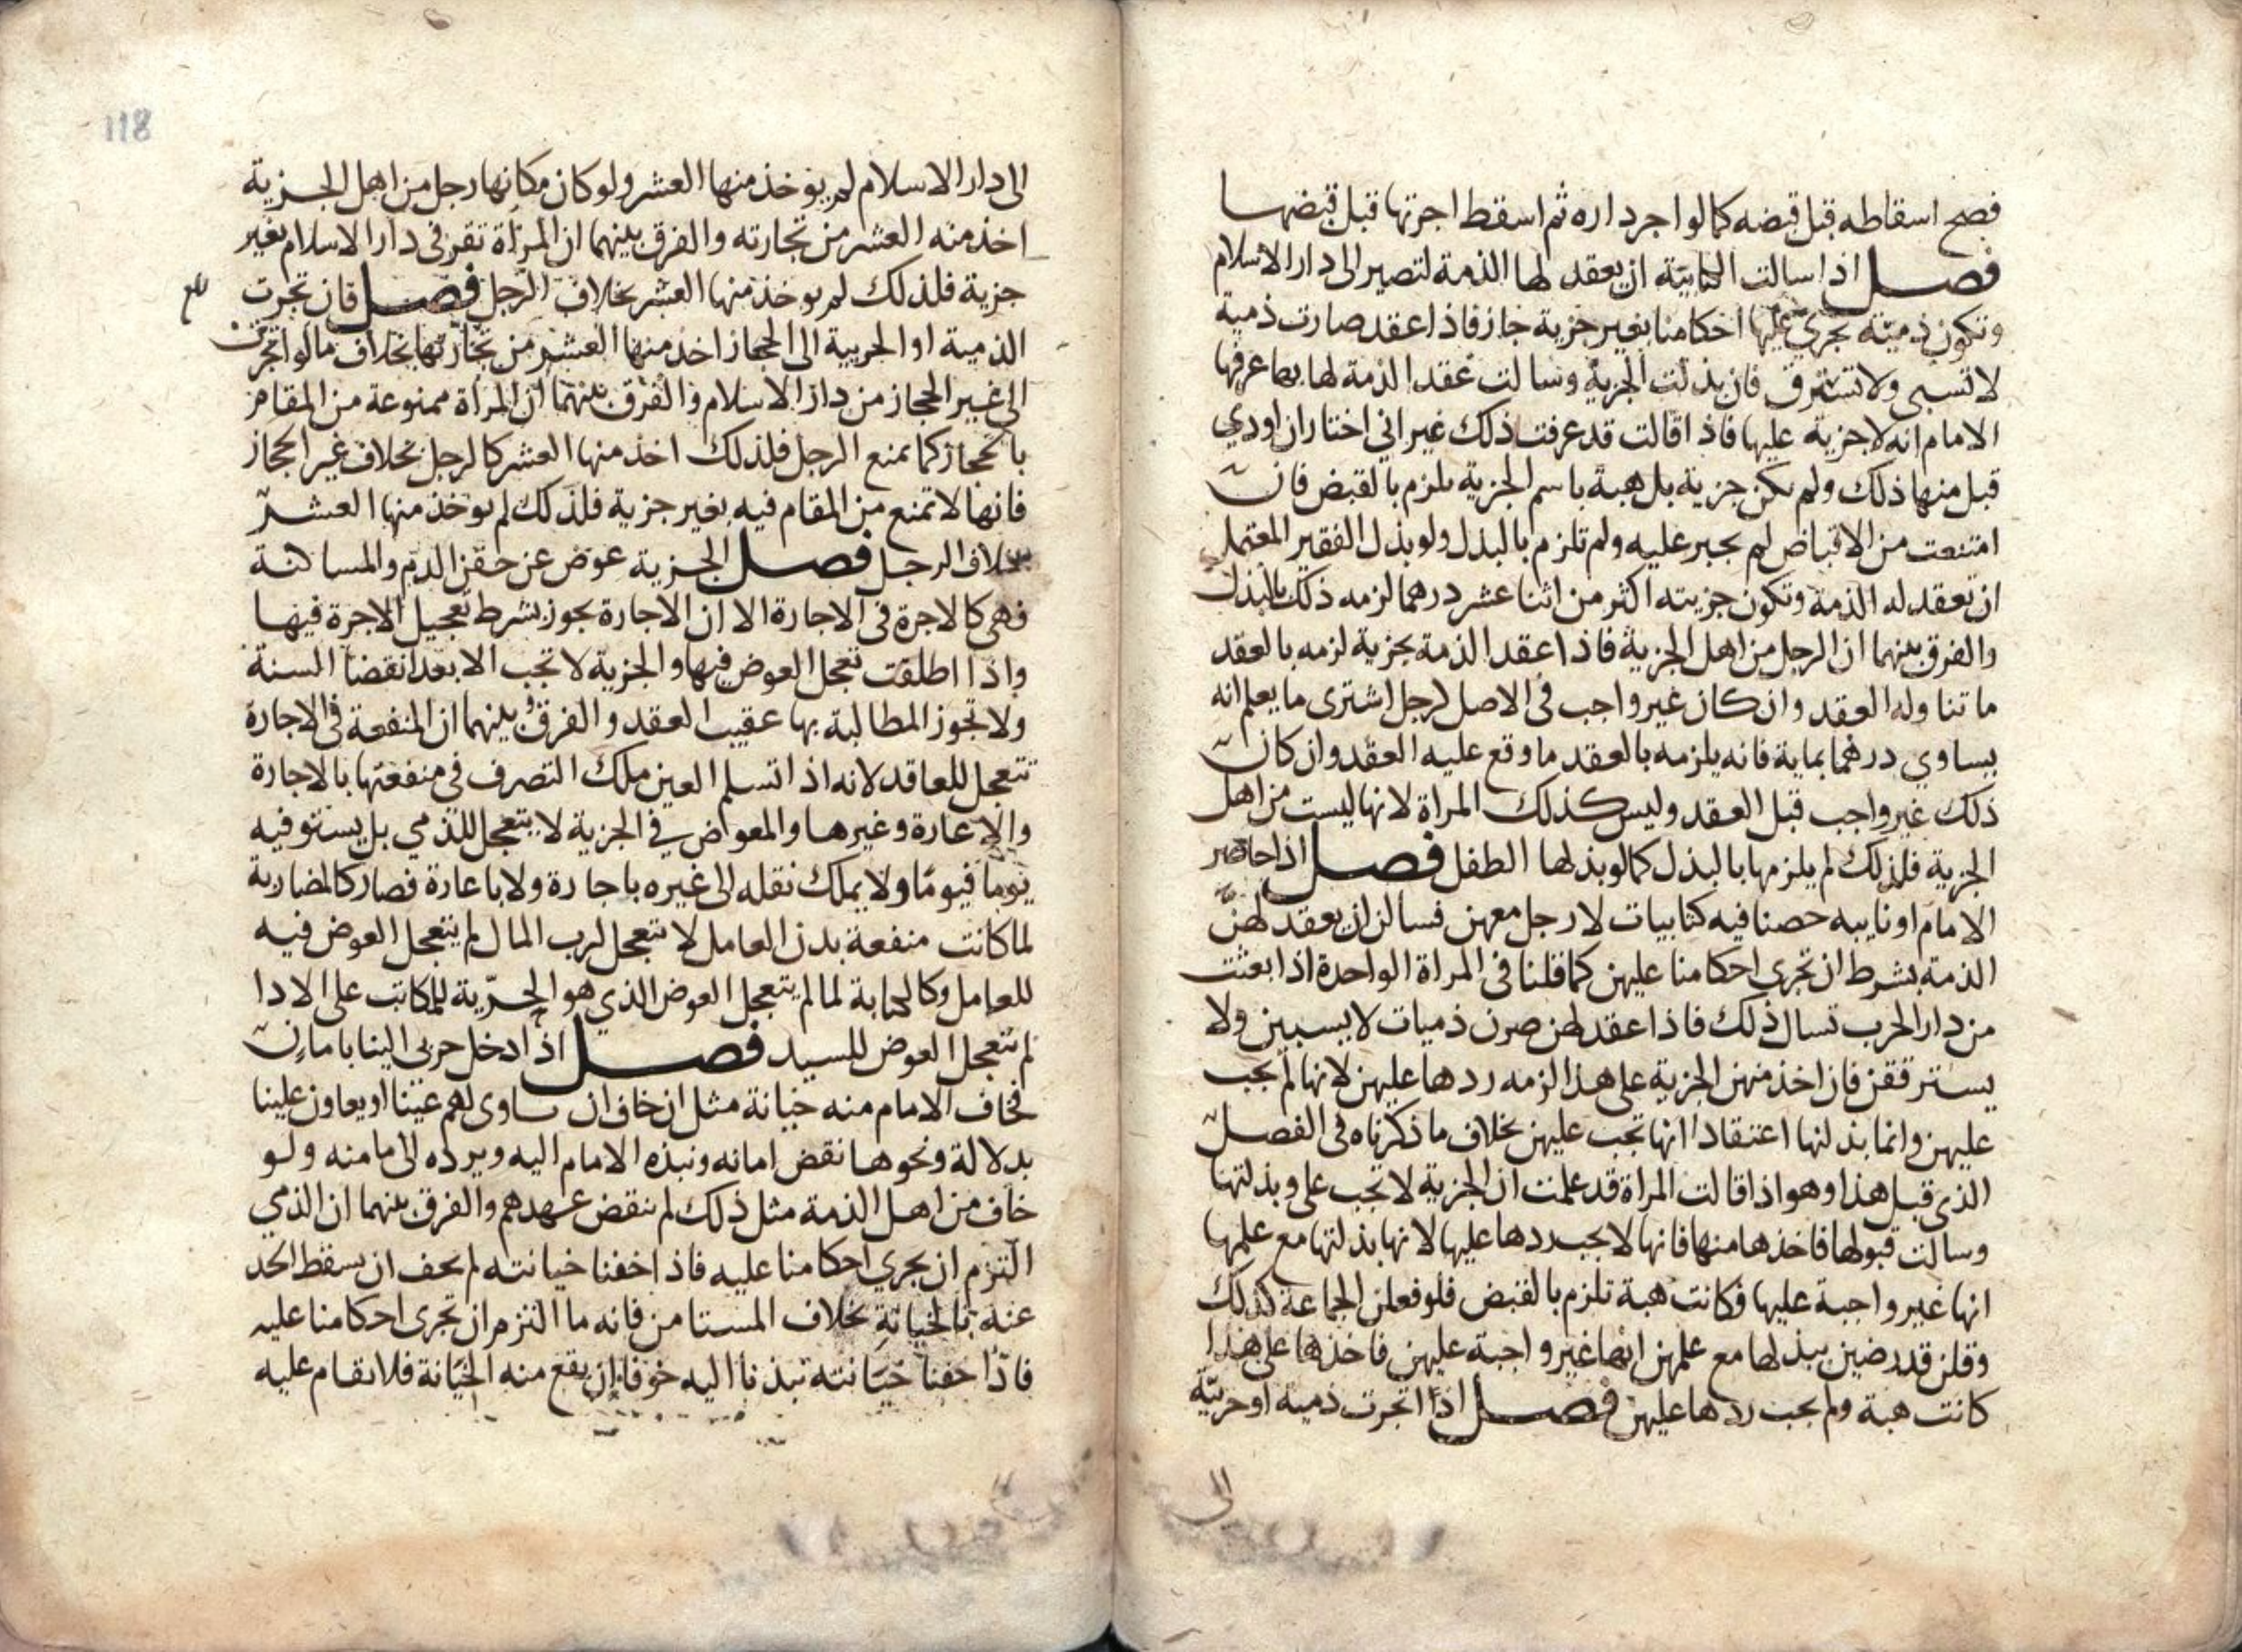 فصح اسقاطه قبل قبضه كما لو اجر داره ثم اسقط اجرتها قبل قبضها
فصل اذا سالت الكتابية ان يعقد لها الذمة لتصير الى دار الاسلام
وتكون ذمية تجري عليها احكامنا بغير جزية جاز فاذا عقد صارت ذمية
لا تسبى ولا تسترق فان بذلت الجزية وسالت عقد الذمة لها بها عرفها
الامام انه لا جزية عليها فاذا قالت قد عرفت ذلك غير اني اختار ان اودي
قبل منها ذلك ولم يكن جزية بل هبة باسم الجزية يلزم بالقبض فان
امتنعت من الاقباض لم يجبر عليه ولم تلزم بالبذل ولو بذل الفقير المعتمل
ان تعقد له الذمة وتكون جزيته اكثر من اثنا عشر درهما لزمه ذلك بالبذل
والفرق بينهما ان الرجل من اهل الجزية فاذا عقد الذمة بجزية لزمه بالعقد
ما تناوله العقد وان كان غير واجب في الاصل لرجل اشترى ما يعلم انه
يساوي درهما بماية فانه يلزمه بالعقد ما وقع عليه العقد وان كان
ذلك غير واجب قبل العقد وليس كذلك المراة لانها ليست من اهل
الجزية فلذلك لم يلزمها بالبذل كما لو بذلها الطفل فصل اذا حاصر
الامام او نايبه حصنا فيه كتابيات لا رجل معهن فسالن ان يعقد لهن
الذمة بشرط ان تجرى احكامنا عليهن كما قلنا فى المراة الواحدة اذا بعثت
من دار الحرب تسال ذلك فاذا عقد لهن صرن ذميات لا يسبين ولا
يسترققن فان اخذ منهن الجزية على هذا لزمه ردها عليهن لانها لم تجب
عليهن وانما بذلنها اعتقادا انها تجب عليهن بخلاف ما ذكرناه فى الفصل
الذى قبل هذا وهو اذا قالت المراة قد علمت ان الجزية لا تجب على وبذلتها
وسالت قبولها فاخذها منها فانها لا يجب ردها عليها لانها بذلتها مع علمها
انها غير واجبة عليها فكانت هبة تلزم بالقبض فلو فعلن الجماعة كذلك
وقلن قد رضين ببذلها مع علمهن انها غير واجبة عليهن فاخذها على هذا
كانت هبة ولم يجب ردها عليهن فصل اذا اتجرت ذمية او حربية
الى
118
الى دار الاسلام لم يوخذ منها العشر ولو كان مكانها رجل من اهل الجزية
اخذ منه العشر من تجارته والفرق بينهما ان المراة تقر فى دار الاسلام بغير
جزية فلذلك لم يوخذ منها العشر بخلاف الرجل فصل فان تجرت
الذمية او الحربية الى الحجاز اخذ منها العشر من تجارتها بخلاف ما لو اتجرت
الى غير الحجاز من دار الاسلام والفرق بينهما ان المراة ممنوعة من المقام
بالحجاز كما يمنع الرجل فلذلك اخذ منها العشر كالرجل بخلاف غير الحجاز
فانها لا تمنع من المقام فيه بغير جزية فلذلك لم يوخذ منها العشر
بخلاف الرجل فصل الجزية عوض عن حقن الدم والمساكنة
فهى كالاجرة فى الاجارة الا ان الاجارة يجوز بشرط تعجيل الاجرة فيها
واذا اطلقت تعجل العوض فيها والجزية لا تجب الا بعد انقضا السنة
ولا تجوز المطالبة بها عقيب العقد والفرق بينهما ان المنفعة فى الاجارة
تتعجل للعاقد لانه اذا تسلم العين ملك التصرف في منفعتها بالاجارة
والاعارة وغيرها والمعوض في الجزية لا يتعجل للذمي بل يستوفيه
يوما فيوما ولا يملك نقله الى غيره باجارة ولا باعارة فصار كالمضاربة
لما كانت منفعة بدن العامل لا تتعجل لرب المال لم يتعجل العوض فيه
للعامل وكالكتابة لما لم يتعجل العوض الذي هو الحرية للمكاتب على الادا
لم يتعجل العوض للسيد فصل اذا دخل حربى الينا بامان
فخاف الامام منه خيانة مثل ان خاف ان ياوى لهم عينا او يعاون علينا
بدلالة ونحوها نقض امانه ونبذه الامام اليه ويرده الى مامنه ولو
خاف من اهل الذمة مثل ذلك لم ينقض عهدهم والفرق بينهما ان الذمي
التزم ان يجري احكامنا عليه فاذا خفنا خيانته لم يخف ان يسقط الحد
عنه بالخيانة بخلاف المستامن فانه ما التزم ان تجرى احكامنا عليه
فاذا خفنا خيانته نبذنا اليه خوفا ان يقع منه الخيانة فلا يقام عليه